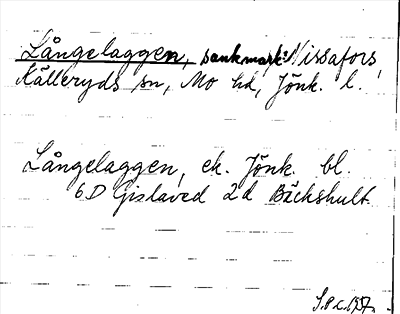 Långelaggen, sankmark: Nissafors,
Källeryds sn, Mo hd, Jönk. l.
Långelaggen, ek. Jönk. bl.
6D Gislaved 2d Bäckshult